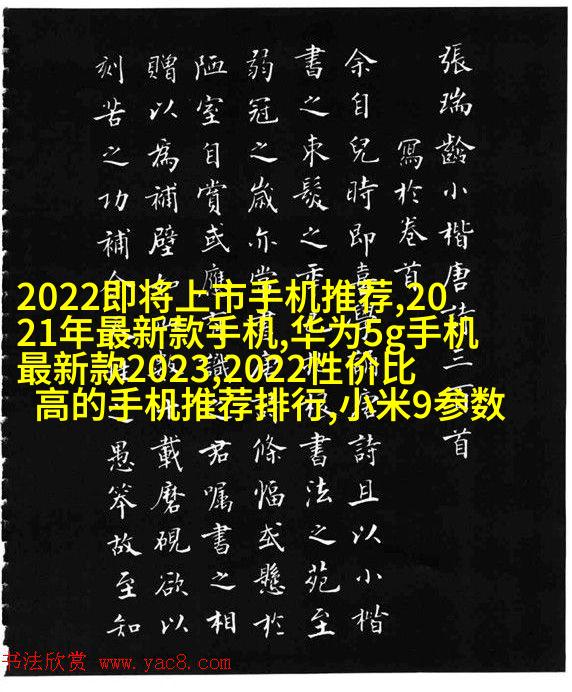 張瑞齡小楷唐詩三百首
寫於卷首
余自兒時即喜學唐詩且以小楷
書之束髮之書法之苑至
弱冠之歲亦嘗書條幅或懸於
陋室自賞或應識之君囑書之相
贈以為補壁載磨硯欲以
刻苦之功補愚笨故至知
2022即将上市手机推荐,20
21年最新款手机,华为5g手机
最新款2023,2022性价比
高的手机推荐排行,小米9参数
书法欣赏 www.yac8.com